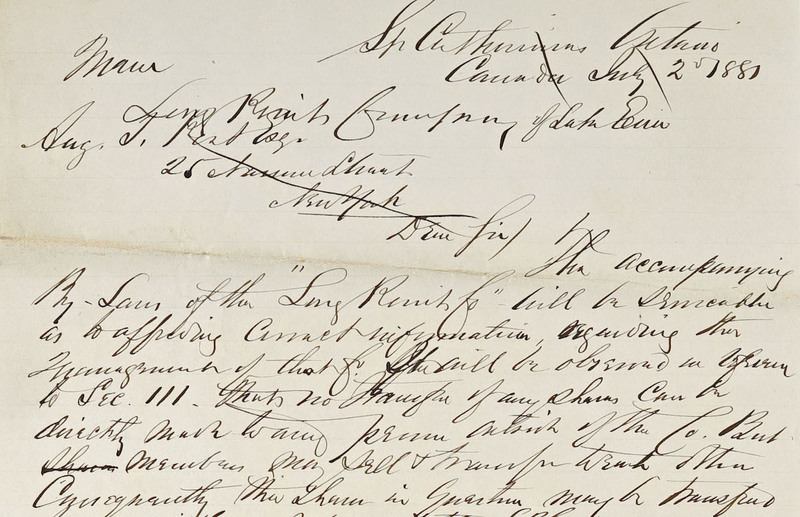 St Catherines Ontario
Canada July 2d 1881
Long Point Company, of Lake Erie
Aug. T. Post Esq.
25 Nassau Street
New York
Dear Sir/
The accompanying
By-Laws of the "Long Point Co" will be serviceable
as to affording correct information, regarding the
management of that Co. It will be observed in reference
to Sec. 111. That no transfer of any shares can be
directly made to any person outside of the Co. But
members may sell & transfer to each other
Consequently the share in question may be transferred